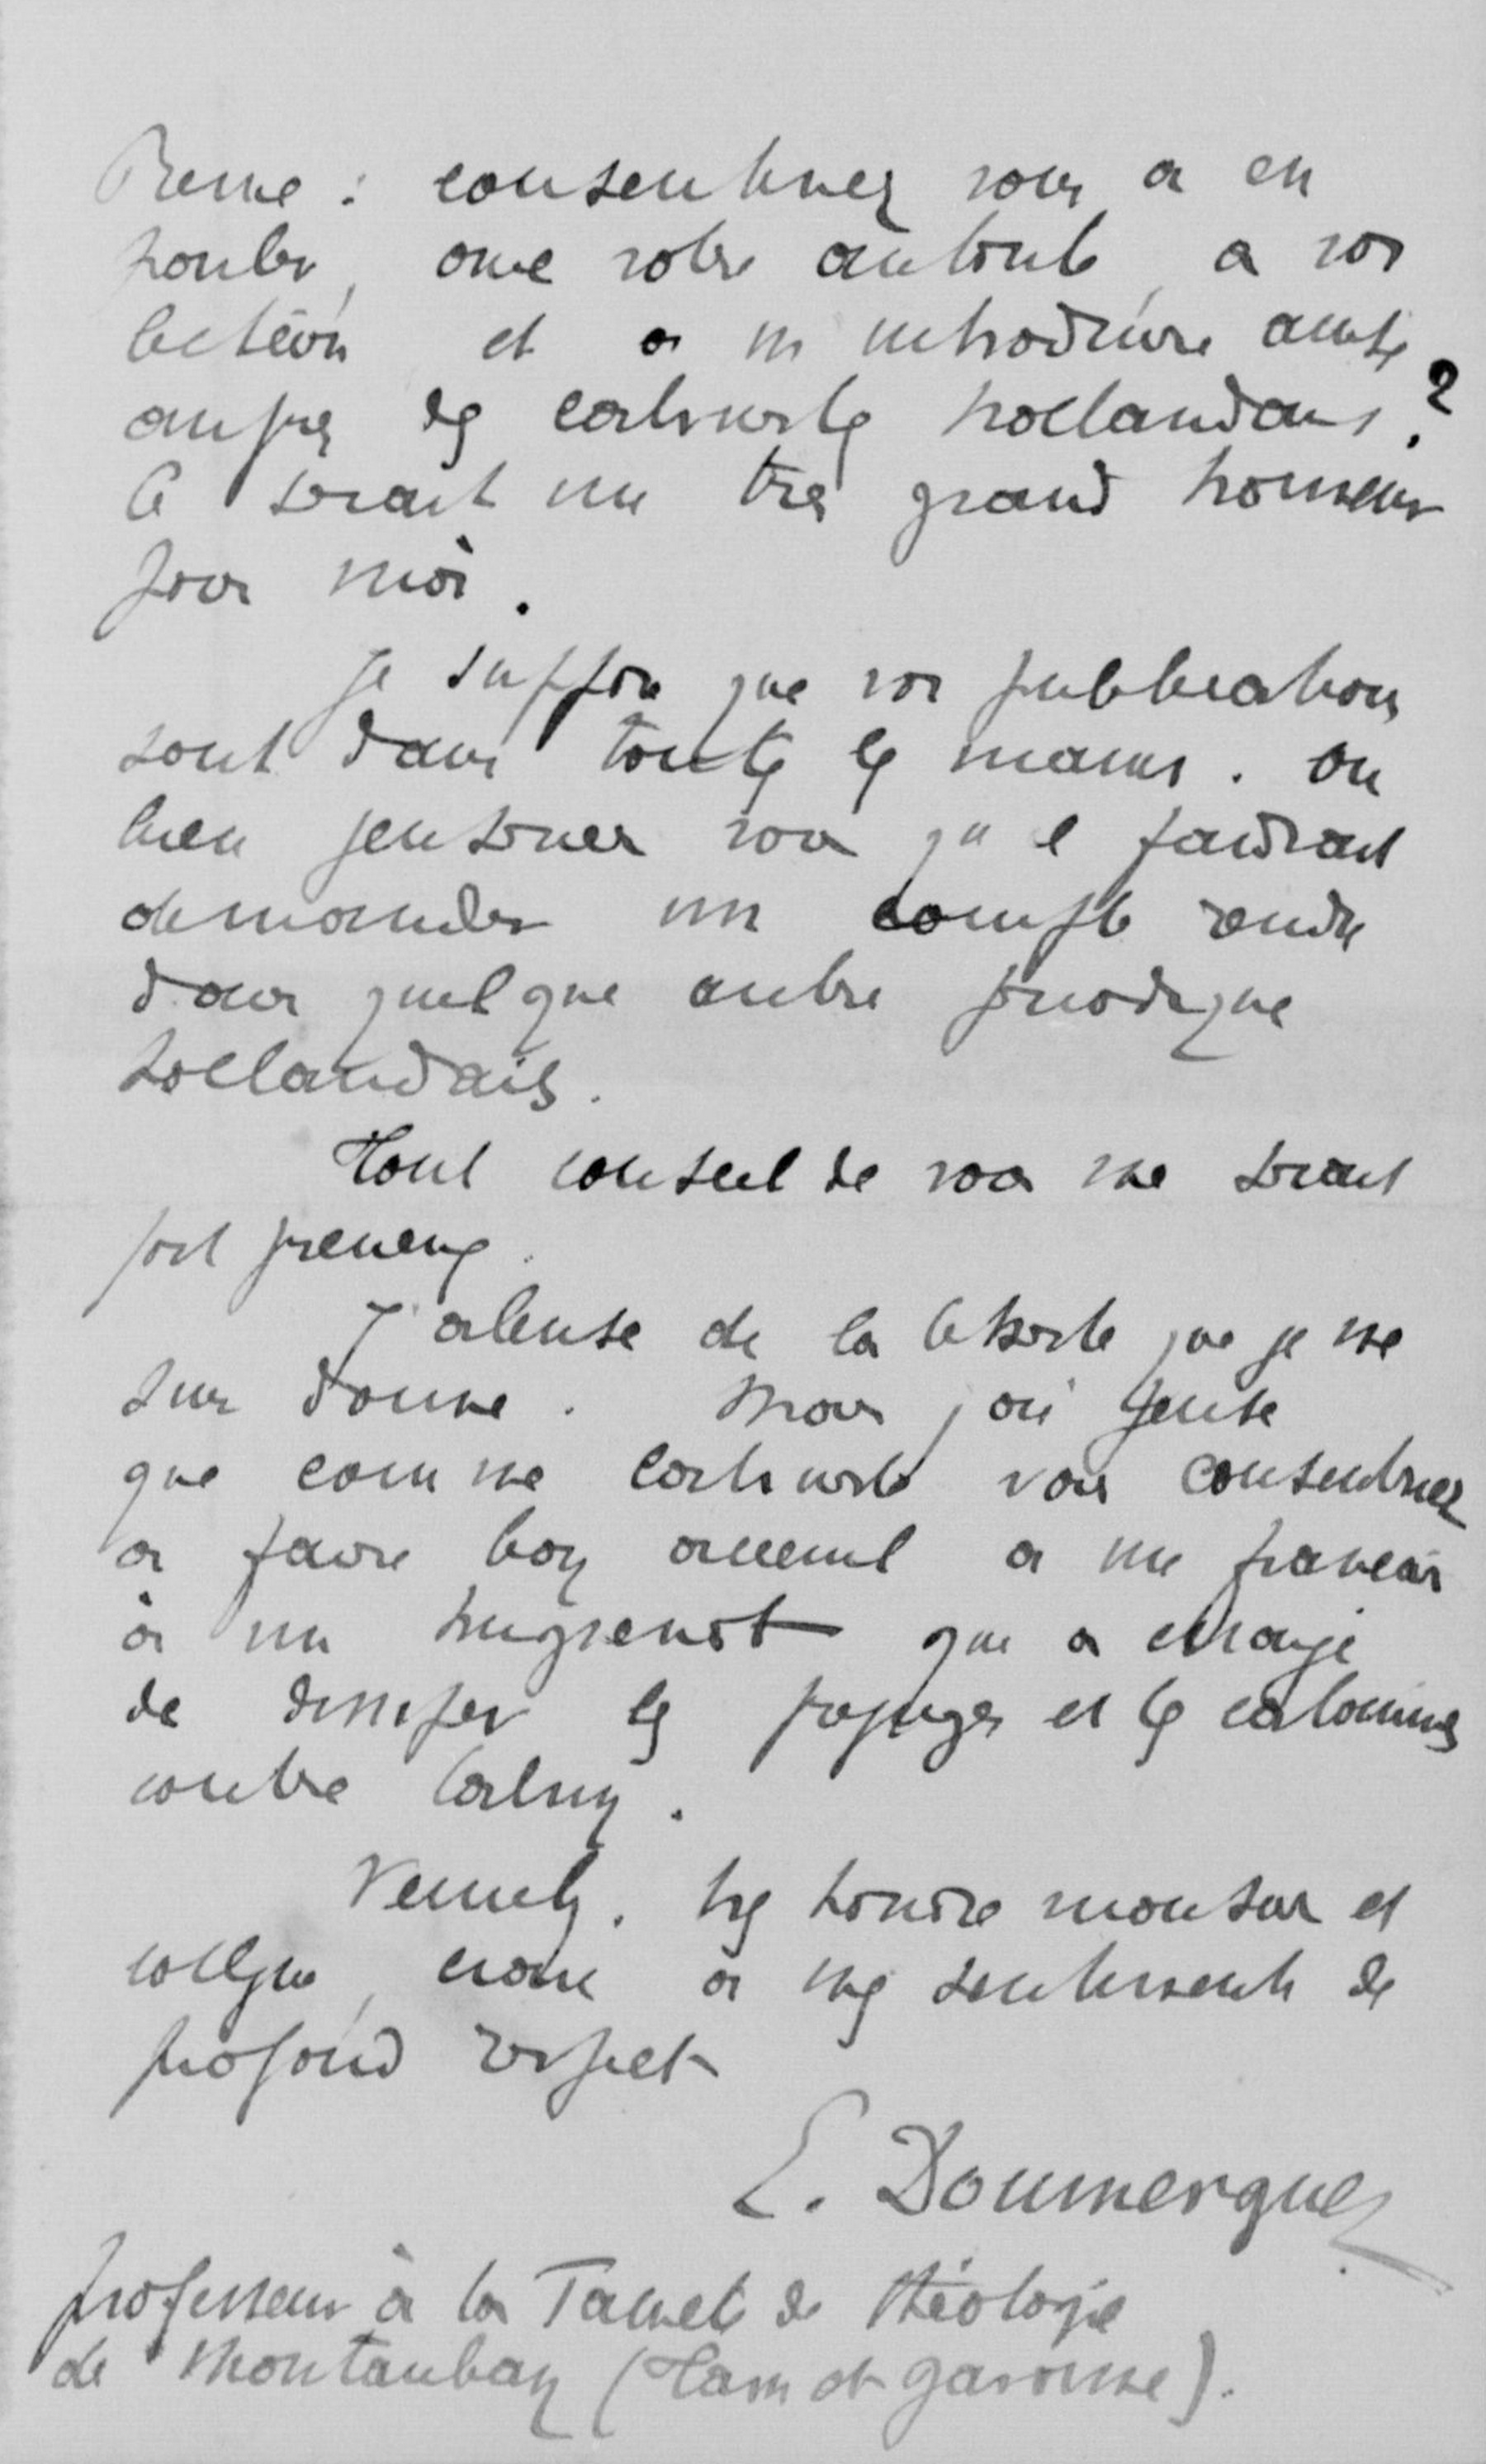 Revue : consentiriez vous à en
parler, avec votre autorité, à vos
lecteurs et à m'introduire ainsi
auprès des calvinistes hollandais ?
Ce serait un très grand honneur
pour moi.
Je suppose que vos publications
sont dans toutes les mains. Ou
bien penseriez vous qu'il faudrait
demander un compte rendu
dans quelque autre périodique
hollandais.
Tout conseil de vous me serait
fort précieux.
J'abuse de la liberté que je me
suis donnée. Mais j'ai pensé
que comme calviniste vous consentiriez
à faire bon accueil à un français
à un huguenot qui a essayé
de dissiper les préjugés et les calomnies
contre Calvin.
Veuillez, très honoré monsieur et
collègue, croire à mes sentiments de
profond respect
E. Doumergue
professeur à la Faculté de théologie
de Montauban (Tarn et Garonne).